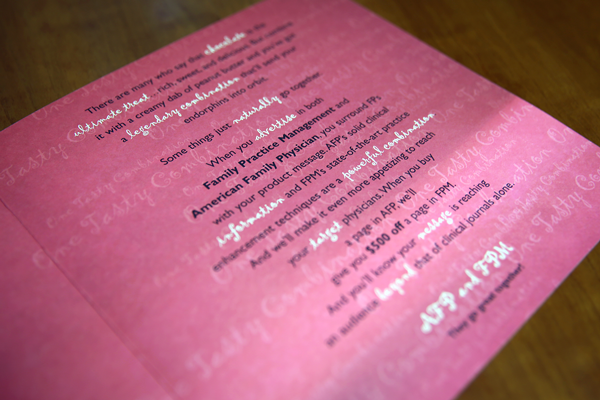 There are many who say that chocolate is the
ultimate treat – rich, sweet, and delicious. But combine
it with a creamy dab of peanut butter and you've got
a legendary combination that'll send your
endorphins into orbit.
Some things just naturally go together.
When you advertise in both
Family Practice Management and
American Family Physician, you surround FPs
with your product message. AFP's solid clinical
information and FPM's state-of-the-art practice
enhancement techniques are a powerful combination.
And we'll make it even more appetizing to reach
your target physicians. When you buy
a page in AFP, we'll
give you $500 off a page in FPM.
And you'll know your message is reaching
an audience beyond that of clinical journals alone.
AFP and FPM
They go great together!
One Tasty Combination